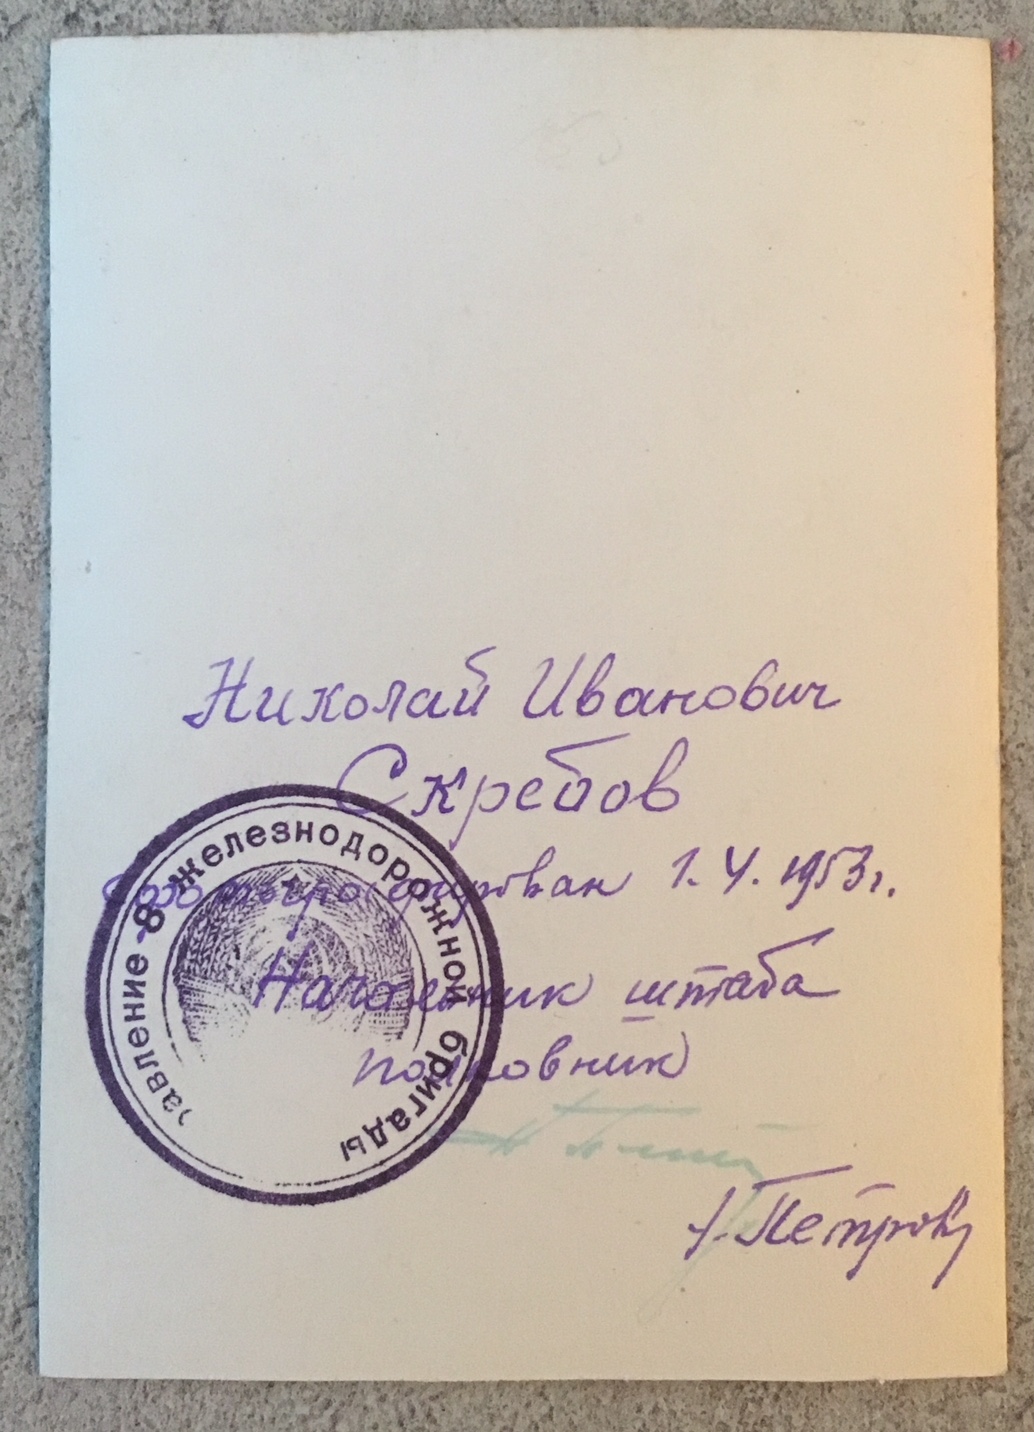 Николай Иванович
Скребов
Сфотографирован 1.4.1953г.
Начальник штаба
полковник
Петров
равление 8 железнодорожной бригады